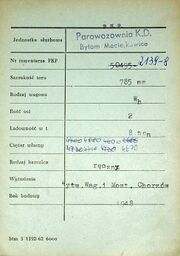 P K P
Jednostka służbowa
Parowozownia K.D.
Bytom Maciejkowice
Nr inwentarza PKP
2139-8
Szerokość toru 785 mm
Rodzaj wagonu Wh
Ilość osi 2
Ładowność w t 8 ton
Ciężar własny
Rodzaj hamulca ręczny
Wytwórnia Wytw.Wag.i Most. Chorzów
Rok budowy 1948